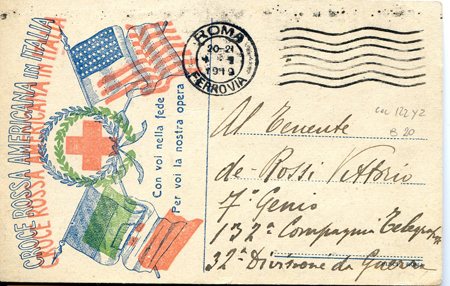 CROCE ROSSA AMERICANA IN ITALIA
Con voi nella fede
Per voi la nostra opera
ROMA
20-21
1919
FERROVIA
Al Tenente
de Rossi Vittorio
7° Genio
132ª Compagnia
32ª Divisione da Guerra
B 20